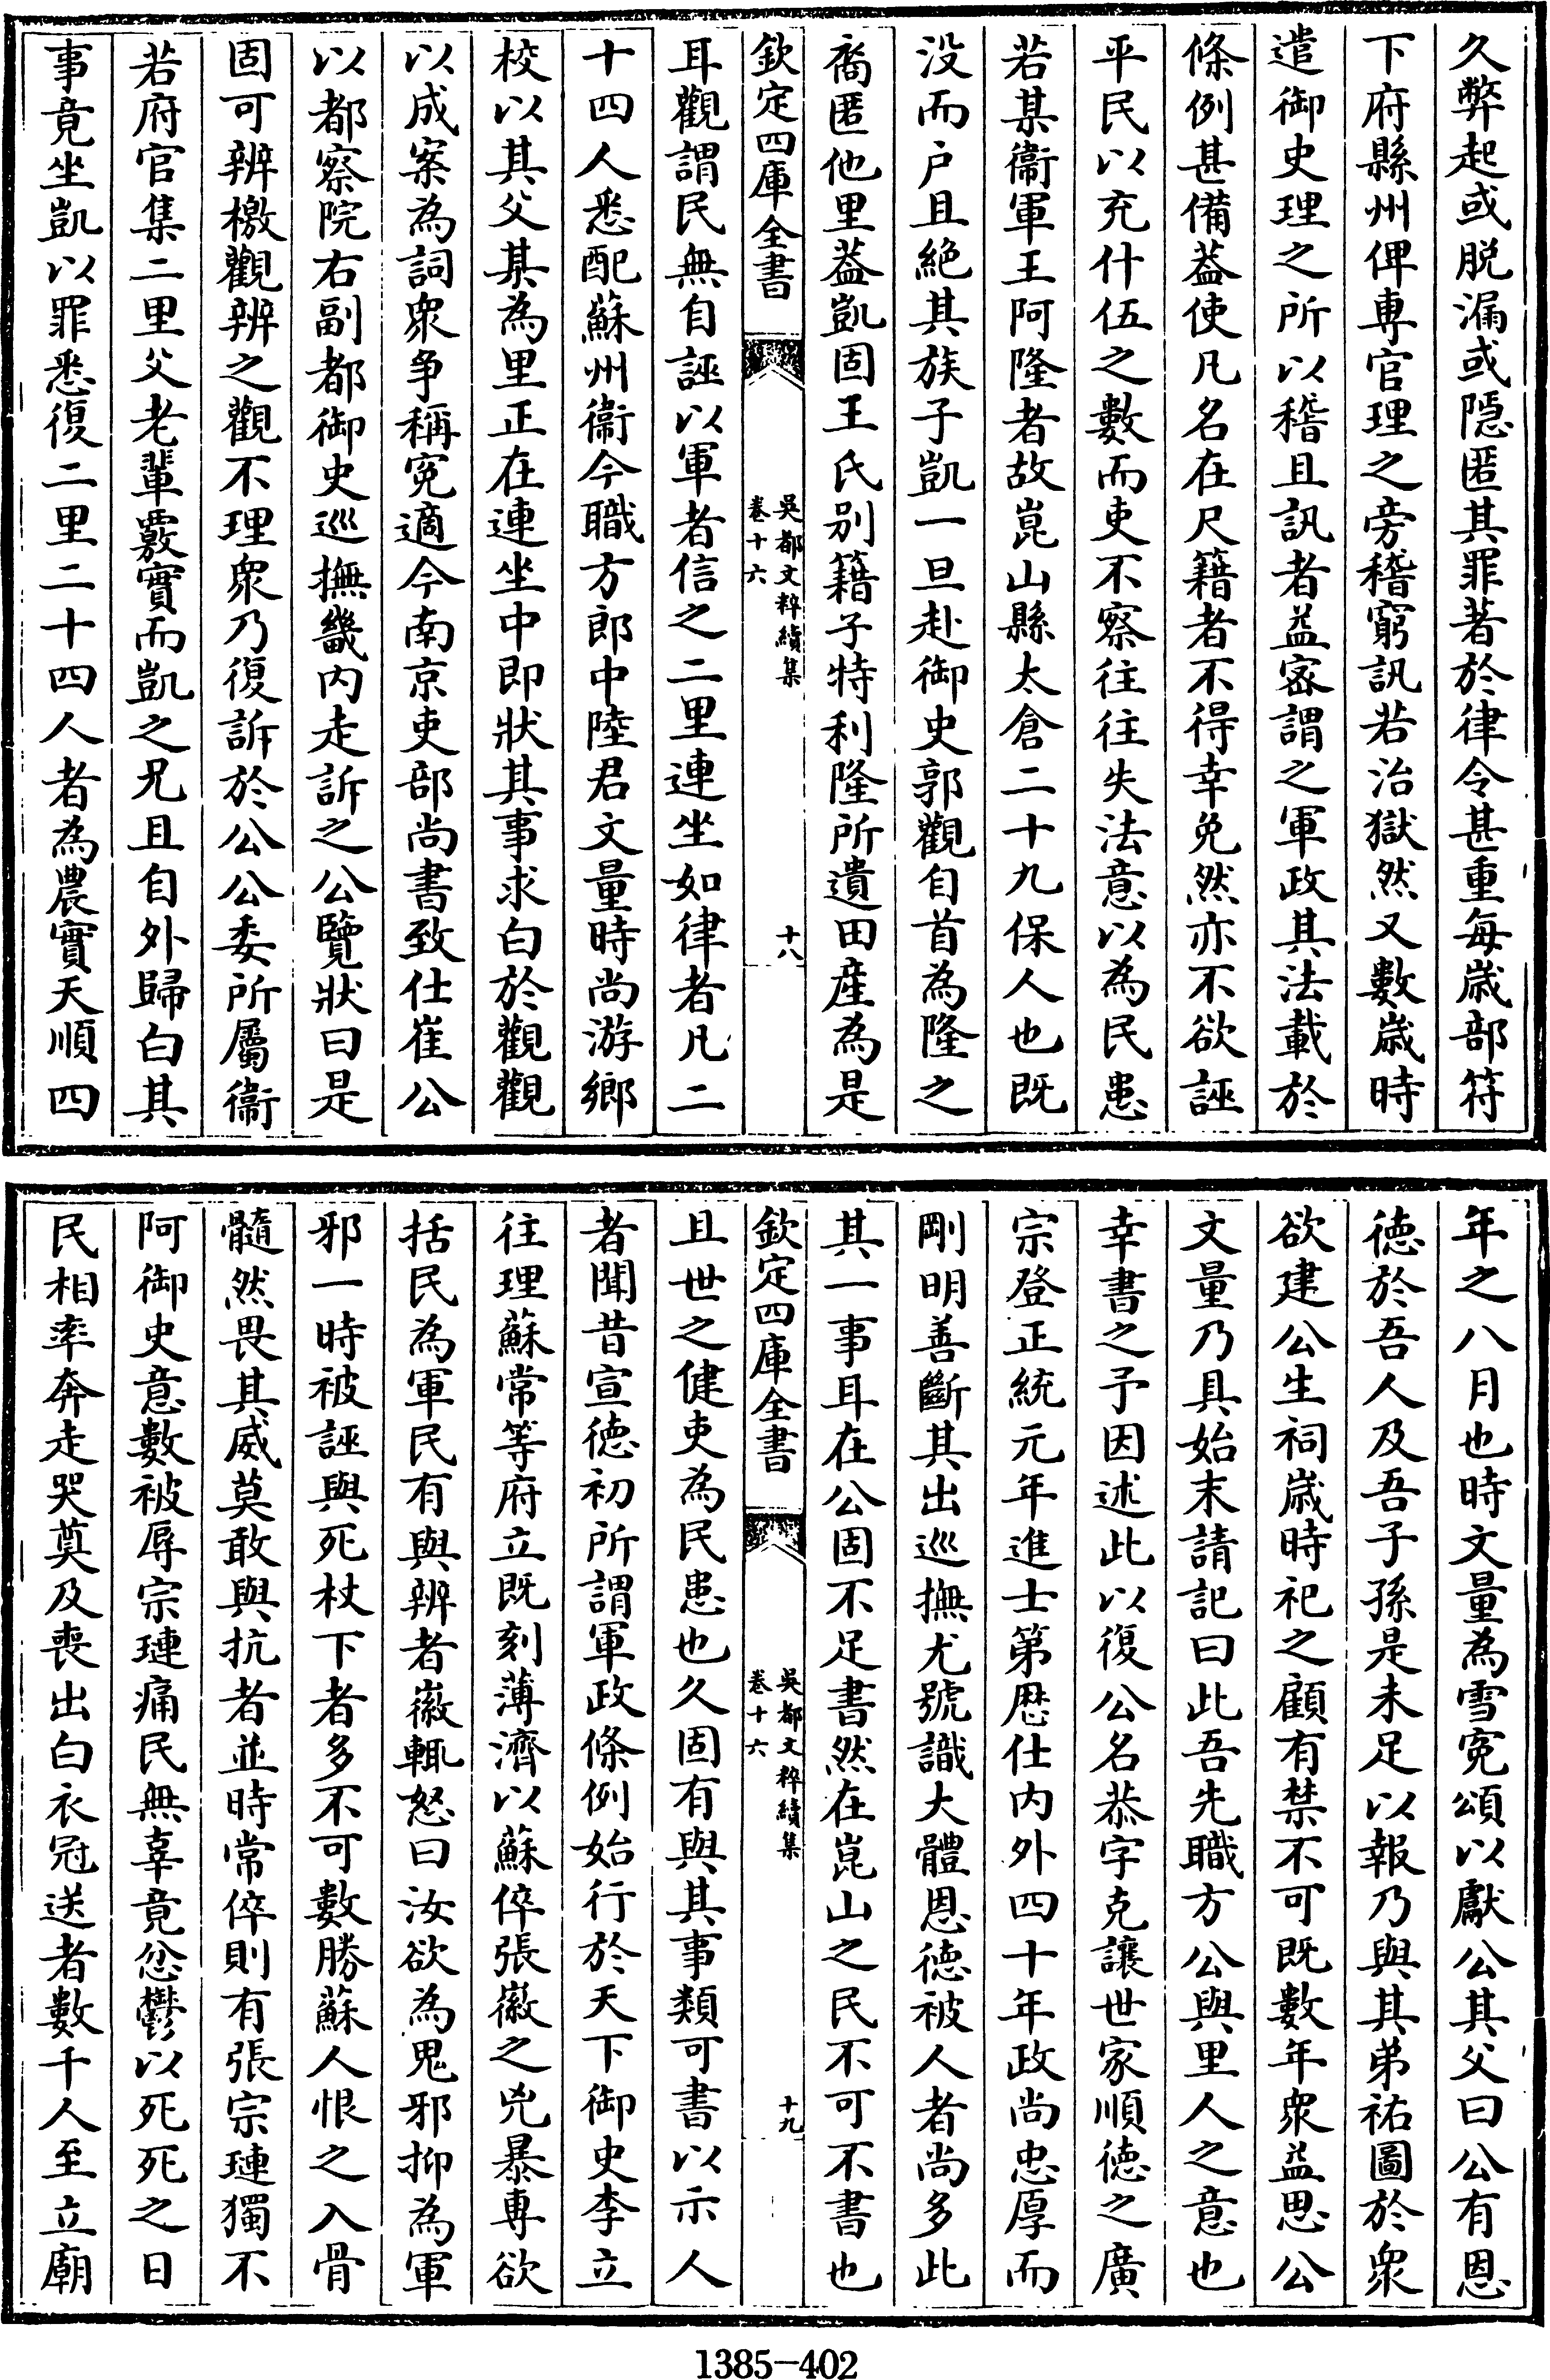 久弊起或脱漏或隱匿其罪著於律令甚重每嵗部符
下府縣州俾專官理之旁稽窮訊若治獄然又數嵗時
遣御史理之所以稽且訊者益宻謂之軍政其法載於
條例甚備葢使凡名在尺籍者不得幸免然亦不欲誣
平民以充什伍之數而吏不察往往失法意以為民患
若某衞軍王阿隆者故崑山縣太倉二十九保人也既
没而户且絶其族子凱一旦赴御史郭觀自首為隆之
裔匿他里葢凱固王氏别籍子特利隆所遺田産為是
欽定四庫全書
吳都文粹續集
卷十六
十八
耳觀謂民無自誣以軍者信之二里連坐如律者凡二
十四人悉配蘇州衞今職方郎中陸君文量時尚游鄉
校以其父某為里正在連坐中即狀其事求白於觀觀
以成案為詞衆争稱寃適今南京吏部尚書致仕崔公
以都察院右副都御史巡撫畿内走訴之公覽狀曰是
固可辨檄觀辨之觀不理衆乃復訴於公公委所屬衞
若府官集二里父老輩覈實而凱之兄且自外歸白其
事竟坐凱以罪悉復二里二十四人者為農實天順四
年之八月也時文量為雪寃頌以獻公其父曰公有恩
德於吾人及吾子孫是未足以報乃與其弟祐圖於衆
欲建公生祠嵗時祀之顧有禁不可既數年衆益思公
文量乃具始末請記曰此吾先職方公與里人之意也
幸書之予因述此以復公名恭字克讓世家順徳之廣
宗登正統元年進士第歴仕内外四十年政尚忠厚而
剛明善斷其出巡撫尤號識大體恩徳被人者尚多此
其一事耳在公固不足書然在崑山之民不可不書也
欽定四庫全書
吳都文粹續集
卷十六
十九
且世之健吏為民患也久固有與其事類可書以示人
者聞昔宣徳初所謂軍政條例始行於天下御史李立
往理蘇常等府立既刻薄濟以蘇倅張徽之兇暴専欲
括民為軍民有與辨者徽輒怒曰汝欲為鬼邪抑為軍
邪一時被誣與死杖下者多不可數勝蘇人恨之入骨
髓然畏其威莫敢與抗者並時常倅則有張宗璉獨不
阿御史意數被辱宗璉痛民無辜竟忿鬱以死死之日
民相率奔走哭奠及喪出白衣冠送者數千人至立廟
1385-402